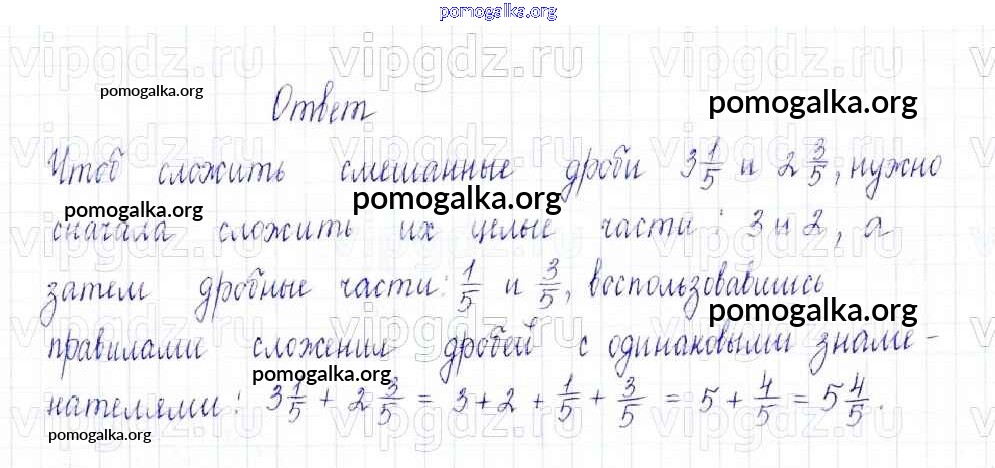 pomogalka.org
vipgdz.ru vipgdz.ru vipgdz.ru
pomogalka.org
Ответ
pomogalka.org
vipgdz.ru vipgdz.ru vipgdz.ru
Чтоб сложить смешанные дроби 3 1/5 и 2 3/5, нужно
pomogalka.org
pomogalka.org
сначала сложить их целые части: 3 и 2, а
затем дробные части: 1/5 и 3/5, воспользовавшись
pomogalka.org
vipgdz.ru vipgdz.ru vipgdz.ru
правилами сложения дробей с одинаковыми знаме-
pomogalka.org
нателями: 3 1/5 + 2 3/5 = 3 + 2 + 1/5 + 3/5 = 5 + 4/5 = 5 4/5.
pomogalka.org